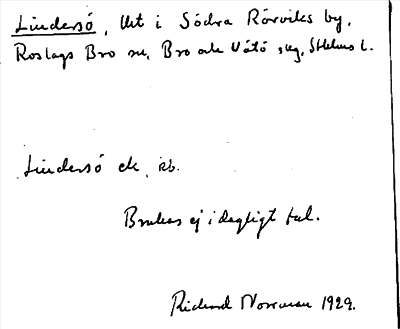 Lindersö, lht i Södra Rörviks by,
Roslags Bro sn, Bro och Vätö skg, Sthlms l.
Lindersö ek, kb.
Brukas ej i dagligt tal.
Rickard Norrman 1929.